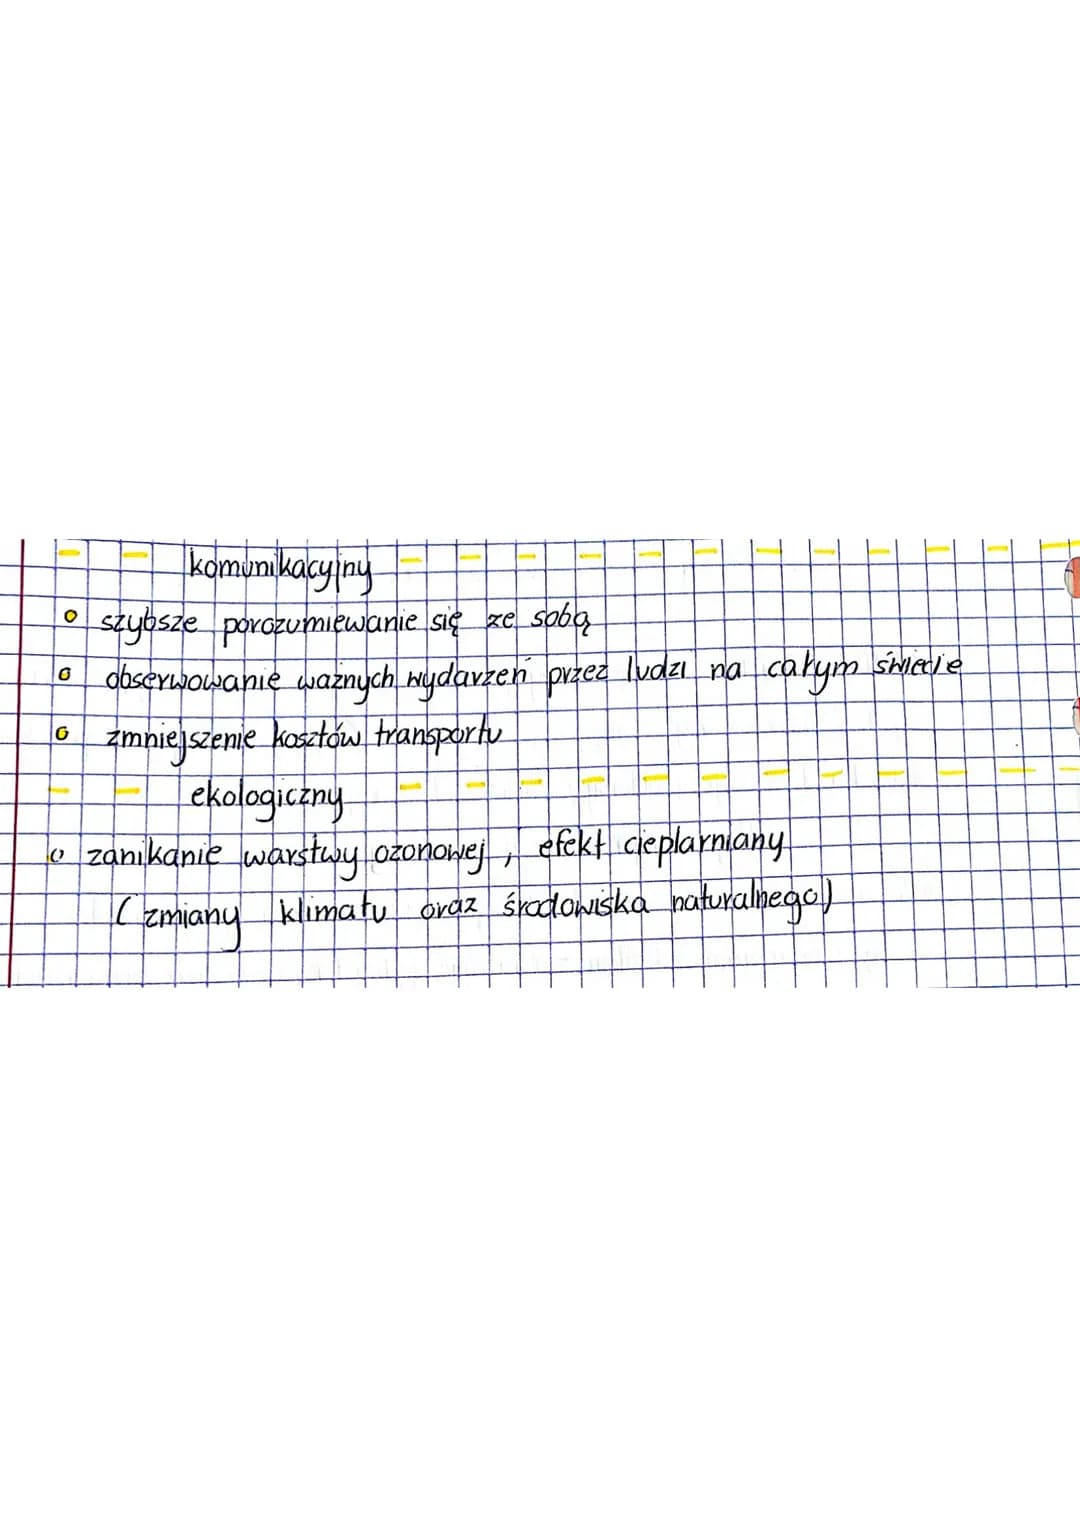 komunikacyjny
szybsze porozumiewanie się ze sobą
obserwowanie ważnych wydarzeń przez ludzi na całym świecie
zmniejszenie kosztów transportu
ekologiczny
zanikanie warstwy ozonowej, efekt cieplarniany
(zmiany klimatu oraz środowiska naturalnego)